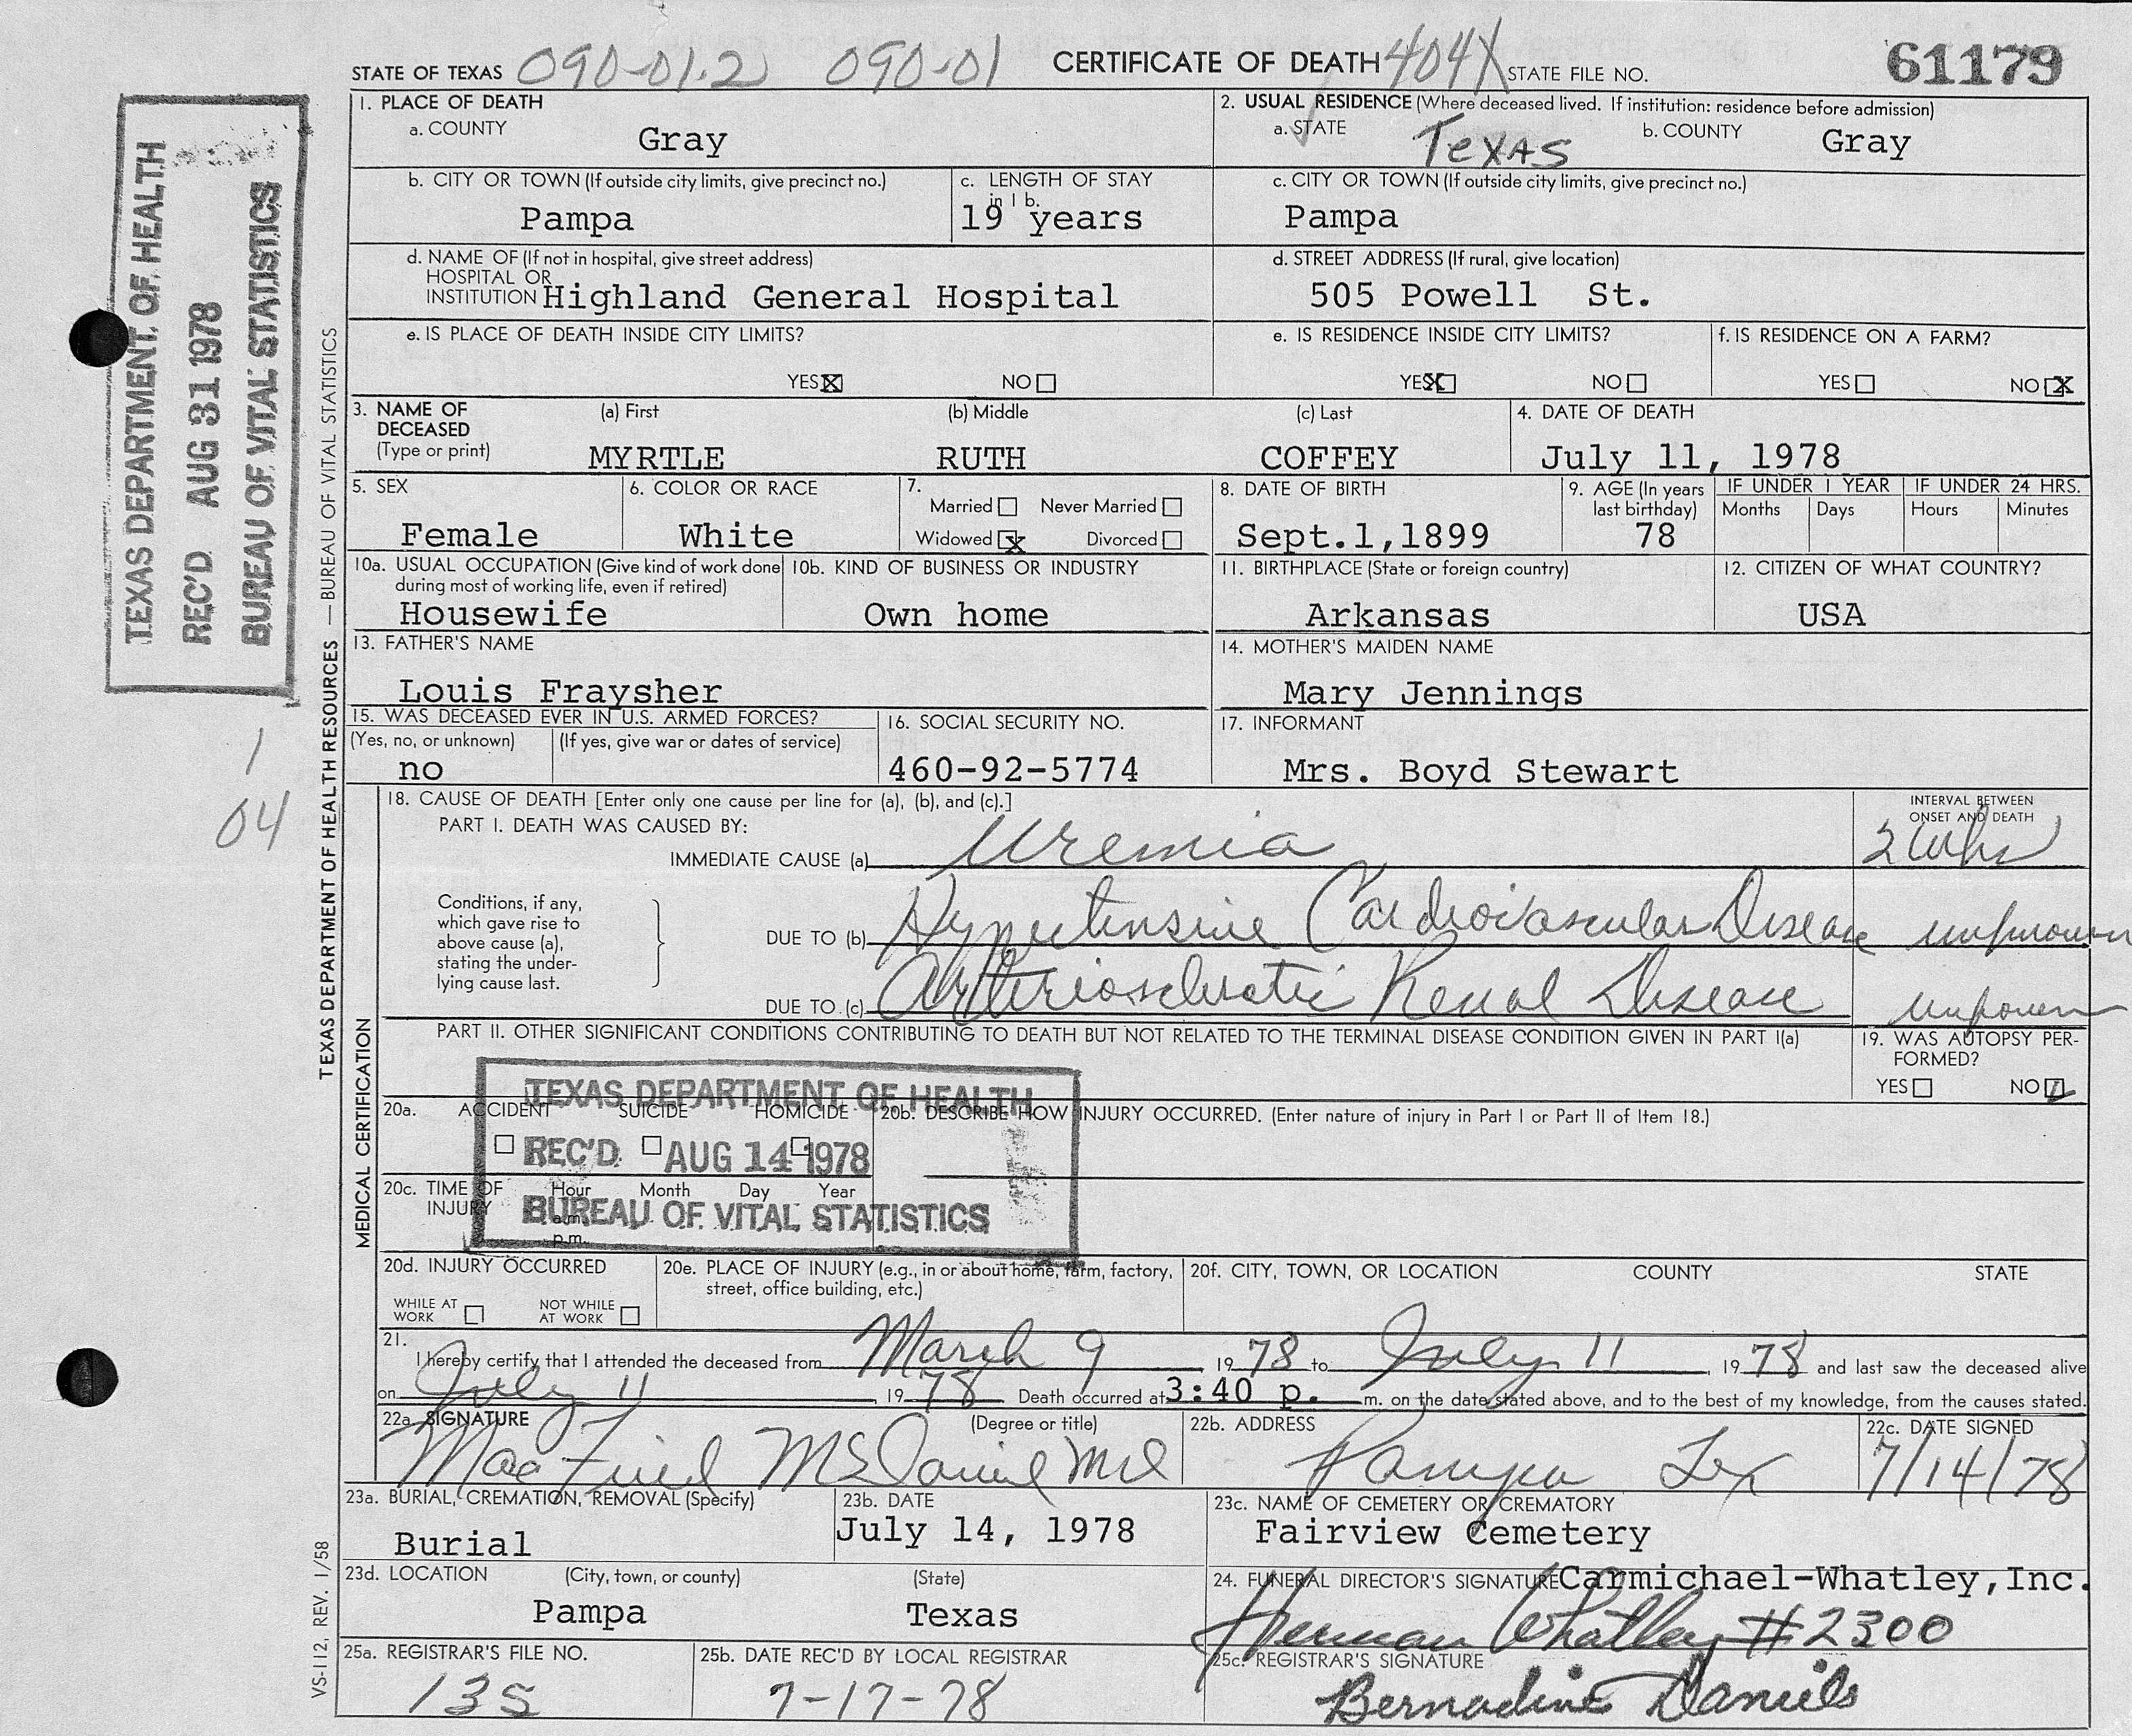 STATE OF TEXAS 090-01.2 090-01 CERTIFICATE OF DEATH 404X STATE FILE NO. 61179
TEXAS DEPARTMENT OF HEALTH
REC'D AUG 31 1978
BUREAU OF VITAL STATISTICS
1
04
TEXAS DEPARTMENT OF HEALTH RESOURCES — BUREAU OF VITAL STATISTICS
1. PLACE OF DEATH
a. COUNTY
Gray
2. USUAL RESIDENCE (Where deceased lived. If institution: residence before admission)
a. STATE Texas b. COUNTY Gray
b. CITY OR TOWN (If outside city limits, give precinct no.)
Pampa
c. LENGTH OF STAY
in 1 b.
19 years
c. CITY OR TOWN (If outside city limits, give precinct no.)
Pampa
d. NAME OF (If not in hospital, give street address)
HOSPITAL OR
INSTITUTION Highland General Hospital
d. STREET ADDRESS (If rural, give location)
505 Powell St.
e. IS PLACE OF DEATH INSIDE CITY LIMITS?
YES X NO
e. IS RESIDENCE INSIDE CITY LIMITS?
YES X NO
f. IS RESIDENCE ON A FARM?
YES NO X
3. NAME OF
DECEASED
(Type or print)
(a) First (b) Middle (c) Last
MYRTLE RUTH COFFEY
4. DATE OF DEATH
July 11, 1978
5. SEX
Female
6. COLOR OR RACE
White
7.
Married Never Married
Widowed X Divorced
8. DATE OF BIRTH
Sept.1,1899
9. AGE (In years
last birthday)
78
IF UNDER 1 YEAR IF UNDER 24 HRS.
Months Days Hours Minutes
10a. USUAL OCCUPATION (Give kind of work done
during most of working life, even if retired)
Housewife
10b. KIND OF BUSINESS OR INDUSTRY
Own home
11. BIRTHPLACE (State or foreign country)
Arkansas
12. CITIZEN OF WHAT COUNTRY?
USA
13. FATHER'S NAME
Louis Fraysher
14. MOTHER'S MAIDEN NAME
Mary Jennings
15. WAS DECEASED EVER IN U.S. ARMED FORCES?
(Yes, no, or unknown) (If yes, give war or dates of service)
no
16. SOCIAL SECURITY NO.
460-92-5774
17. INFORMANT
Mrs. Boyd Stewart
MEDICAL CERTIFICATION
18. CAUSE OF DEATH [Enter only one cause per line for (a), (b), and (c).]
PART I. DEATH WAS CAUSED BY:
IMMEDIATE CAUSE (a) Uremia
INTERVAL BETWEEN
ONSET AND DEATH
2 wks
Conditions, if any,
which gave rise to
above cause (a),
stating the under-
lying cause last.
DUE TO (b) Hypertensive Cardiovascular Disease unknown
DUE TO (c) Arteriosclerotic Renal Disease unknown
PART II. OTHER SIGNIFICANT CONDITIONS CONTRIBUTING TO DEATH BUT NOT RELATED TO THE TERMINAL DISEASE CONDITION GIVEN IN PART I(a)
19. WAS AUTOPSY PER-
FORMED?
YES NO
TEXAS DEPARTMENT OF HEALTH
REC'D AUG 14 1978
BUREAU OF VITAL STATISTICS
20a. ACCIDENT SUICIDE HOMICIDE
20b. DESCRIBE HOW INJURY OCCURRED. (Enter nature of injury in Part I or Part II of Item 18.)
20c. TIME OF
INJURY
Hour Month Day Year
a.m.
p.m.
20d. INJURY OCCURRED
WHILE AT
WORK
NOT WHILE
AT WORK
20e. PLACE OF INJURY (e.g., in or about home, farm, factory,
street, office building, etc.)
20f. CITY, TOWN, OR LOCATION COUNTY STATE
21.
I hereby certify that I attended the deceased from March 9 1978 to July 11, 1978 and last saw the deceased alive
on July 11, 1978 Death occurred at 3:40 p. m. on the date stated above, and to the best of my knowledge, from the causes stated.
22a. SIGNATURE (Degree or title)
McDaniel MD
22b. ADDRESS
Pampa Tex
22c. DATE SIGNED
7/14/78
23a. BURIAL, CREMATION, REMOVAL (Specify)
Burial
23b. DATE
July 14, 1978
23c. NAME OF CEMETERY OR CREMATORY
Fairview Cemetery
23d. LOCATION (City, town, or county) (State)
Pampa Texas
24. FUNERAL DIRECTOR'S SIGNATURE Carmichael-Whatley,Inc.
Herman Whatley #2300
25a. REGISTRAR'S FILE NO.
135
25b. DATE REC'D BY LOCAL REGISTRAR
7-17-78
25c. REGISTRAR'S SIGNATURE
Bernadine Daniels
VS-112, REV. 1/58